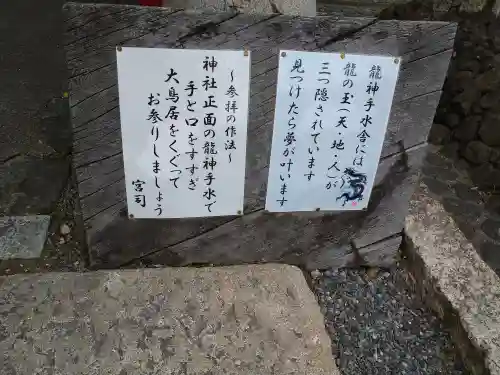 ~参拝の作法~
神社正面の龍神手水で
手と口をすすぎ
大鳥居をくぐって
お参りしましょう
宮司
龍神手水舎には
龍の玉(天・地・人)が
三つ隠されています
見つけたら夢が叶います